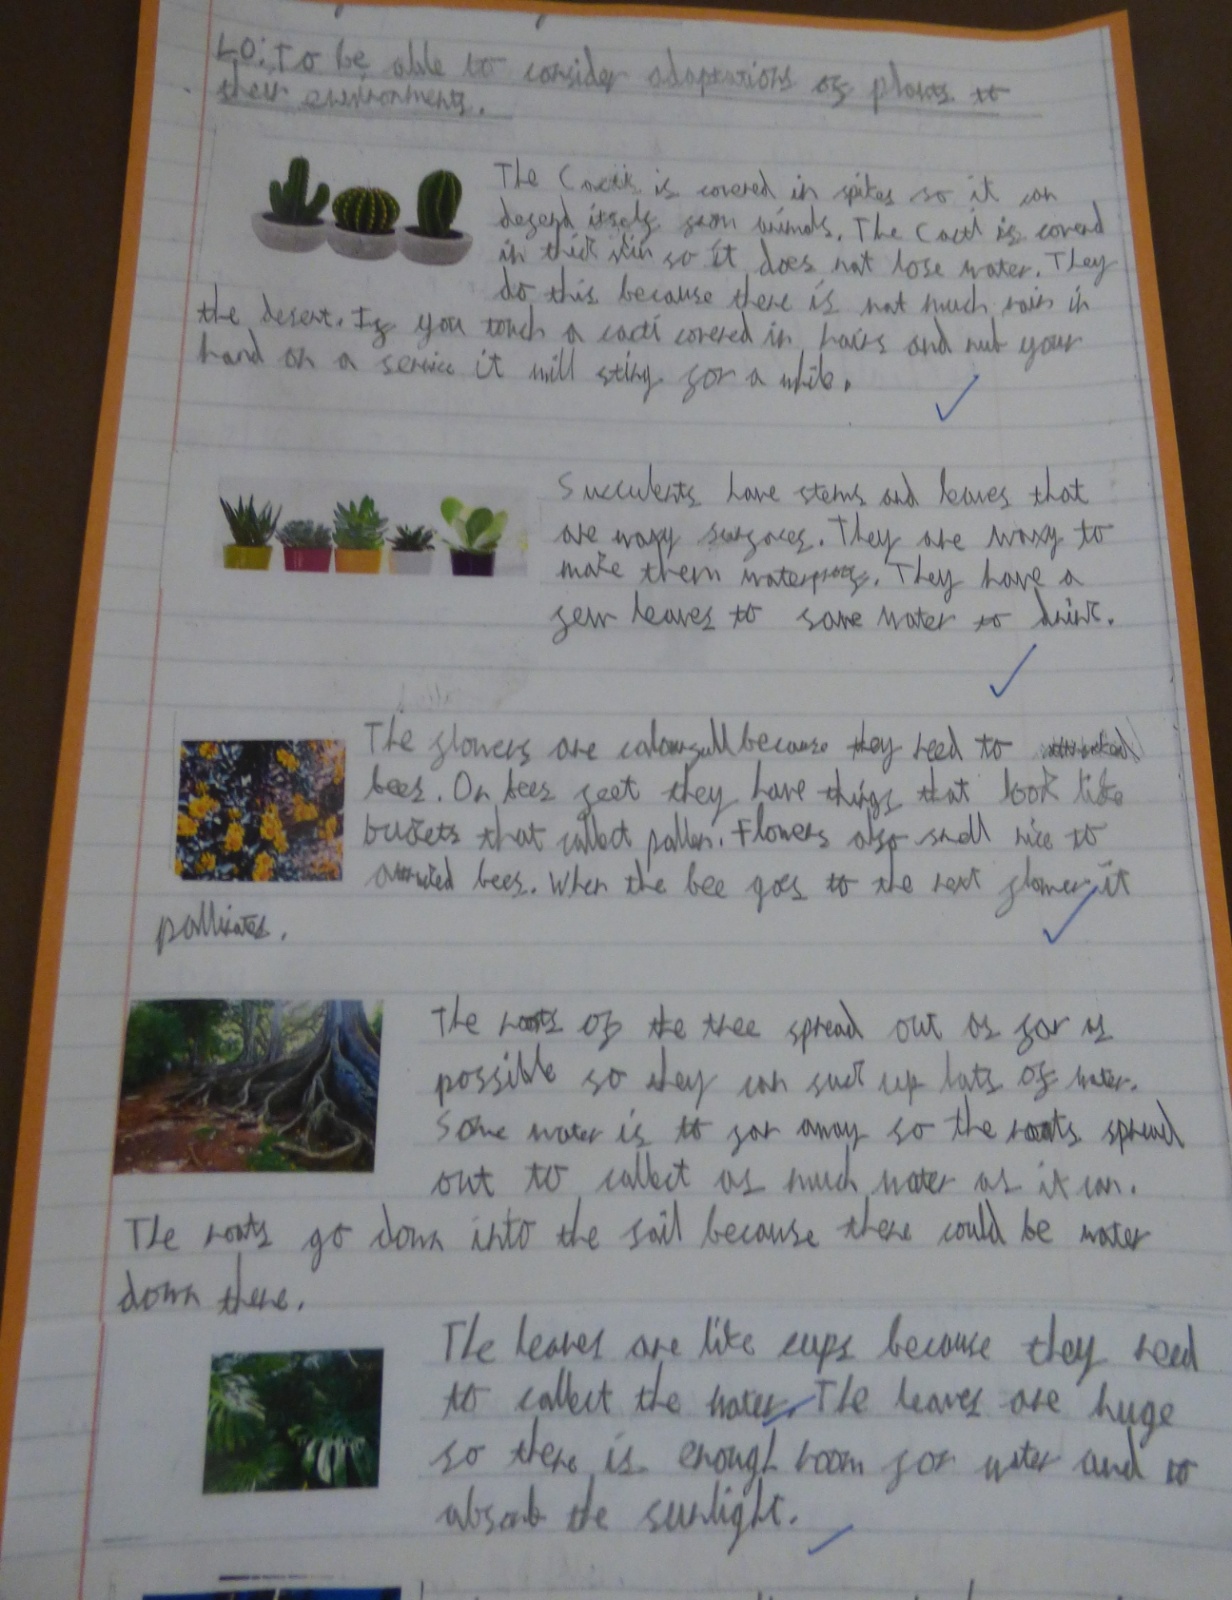 LO: To be able to consider adaptations of plants to
their environments.
The Cacti is covered in spikes so it can
defend itself from animals. The Cacti is coverd
in thick skin so it does not lose water. They
do this because there is not much rain in
the desert. If you touch a cacti covered in hairs and rub your
hand on a service it will sting for a while.
Succulents have stems and leaves that
are waxy surfaces. They are waxy to
make them waterproof. They have a
few leaves to save water to drink.
The flowers are colourfull because they need to
bees. On bees feet they have things that look like
buckets that collect pollen. Flowers also smell nice to
bees. When the bee goes to the next flower it
pollinates.
The roots of the tree spread out as far as
possible so they can suck up lots of water.
Some water is to far away so the roots spread
out to collect as much water as it can.
The roots go down into the soil because there could be water
down there.
The leaves are like cups because they need
to collect the water. The leaves are huge
so there is enough room for water and to
absorb the sunlight.